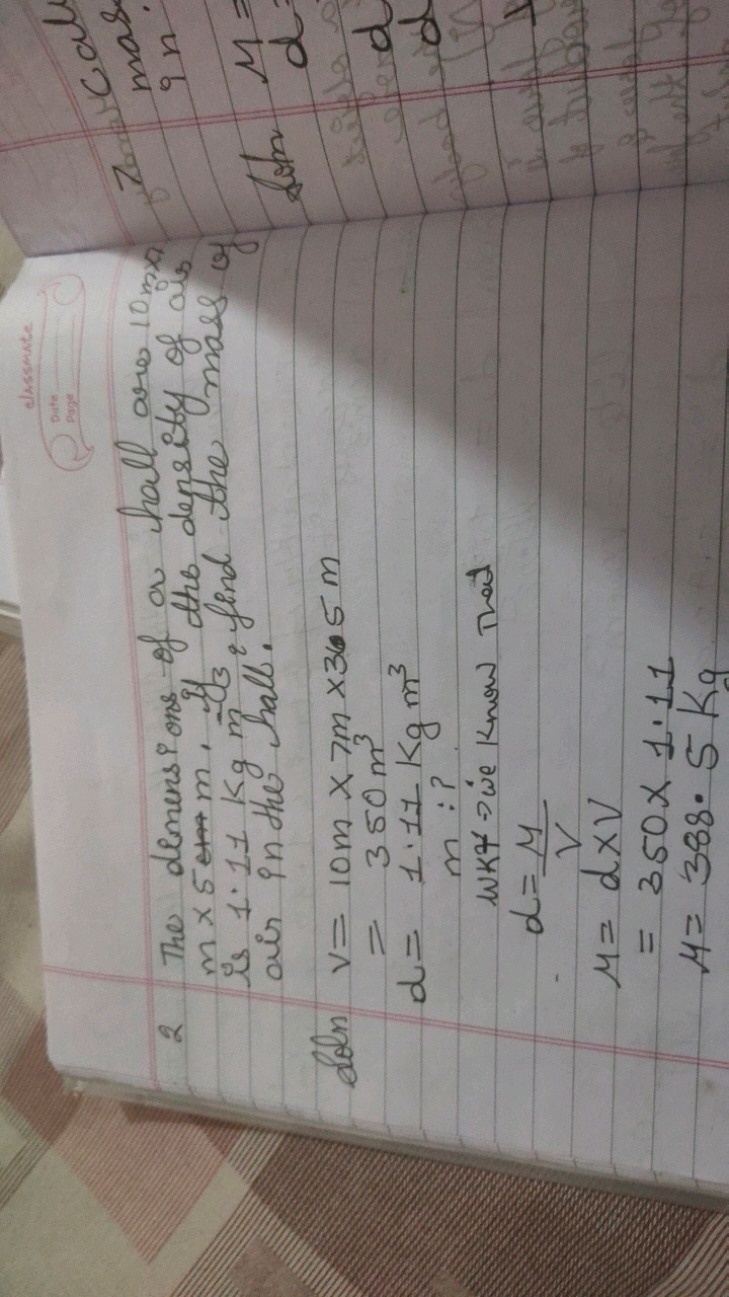 classmate
Date
Page
2 The dimensions of a hall are 10m x 7
m x 5 m. If the density of air
is 1.11 Kg m-3, find the mass of
air in the hall.
Soln V = 10m x 7m x 5m
= 350 m3
d = 1.11 Kg m3
m : ?
WKT → we Know That
d = M
V
M = d x V
= 350 x 1.11
M = 388.5 Kg
Cal
mas
in
Soln M =
d =
d
d